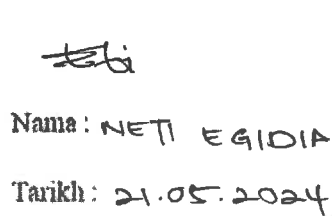 Nama : NETI EGIDIA
Tarikh : 21.05.2024